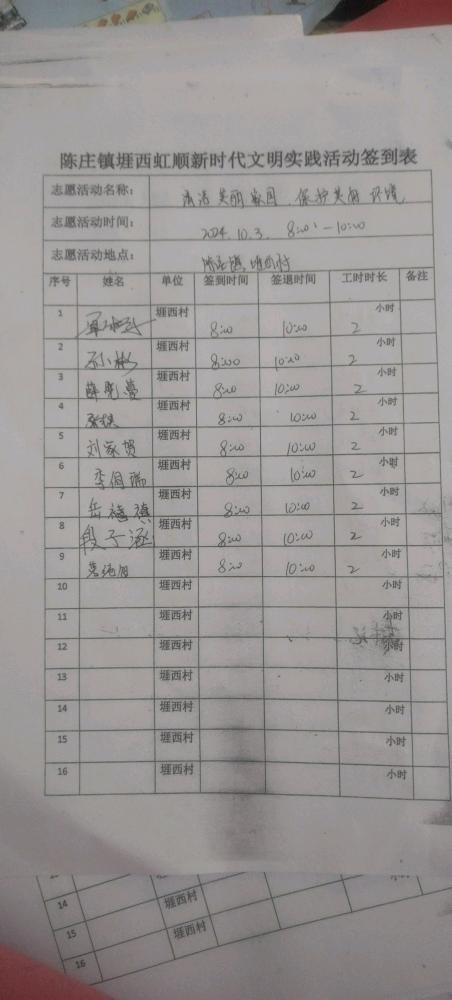 陈庄镇堐西虹顺新时代文明实践活动签到表
志愿活动名称： 清洁美丽家园、保护美好环境
志愿活动时间： 2024.10.3. 8:00—10:00
志愿活动地点： 陈庄镇堐西村
序号 姓名 单位 签到时间 签退时间 工时时长 备注
1 堐西村 8:00 10:00 2 小时
2 堐西村 8:00 10:00 2 小时
3 堐西村 8:00 10:00 2 小时
4 堐西村 8:00 10:00 2 小时
5 刘家贺 堐西村 8:00 10:00 2 小时
6 堐西村 8:00 10:00 2 小时
7 岳禧旗 堐西村 8:00 10:00 2 小时
8 段子涵 堐西村 8:00 10:00 2 小时
9 堐西村 8:00 10:00 2 小时
10 堐西村 小时
11 堐西村 小时
12 堐西村 小时
13 堐西村 小时
14 堐西村 小时
15 堐西村 小时
16 堐西村 小时
13
14 堐西村
15 堐西村
16